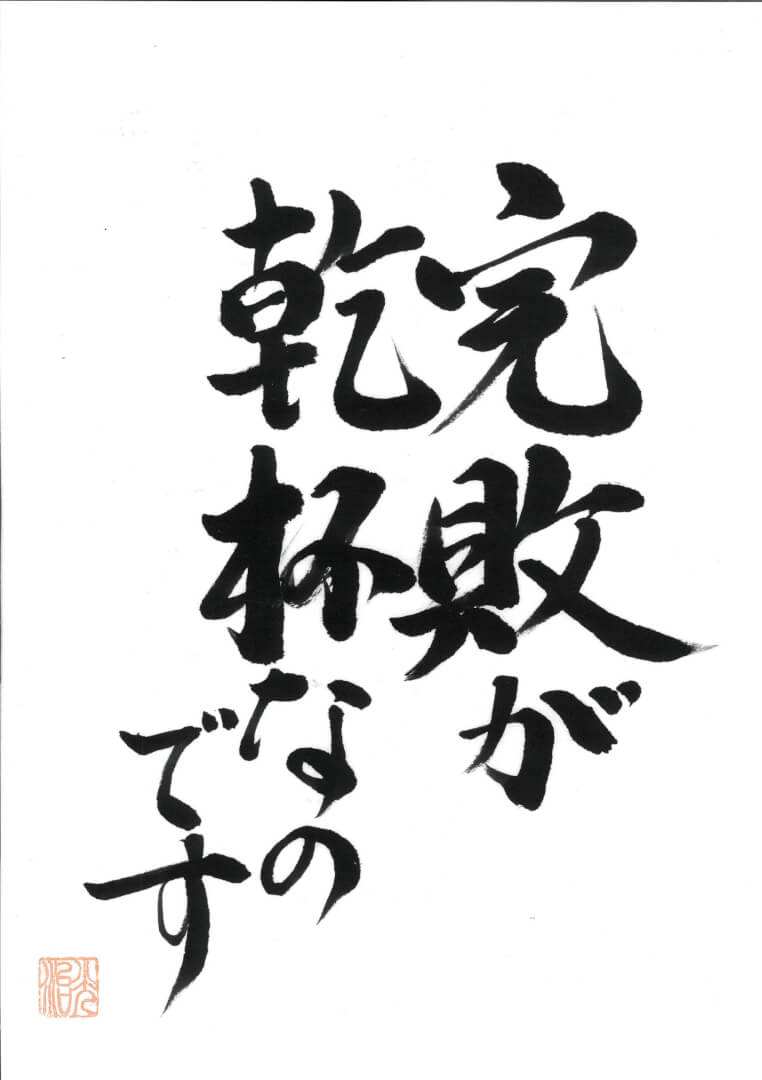 完敗が
乾杯なの
です